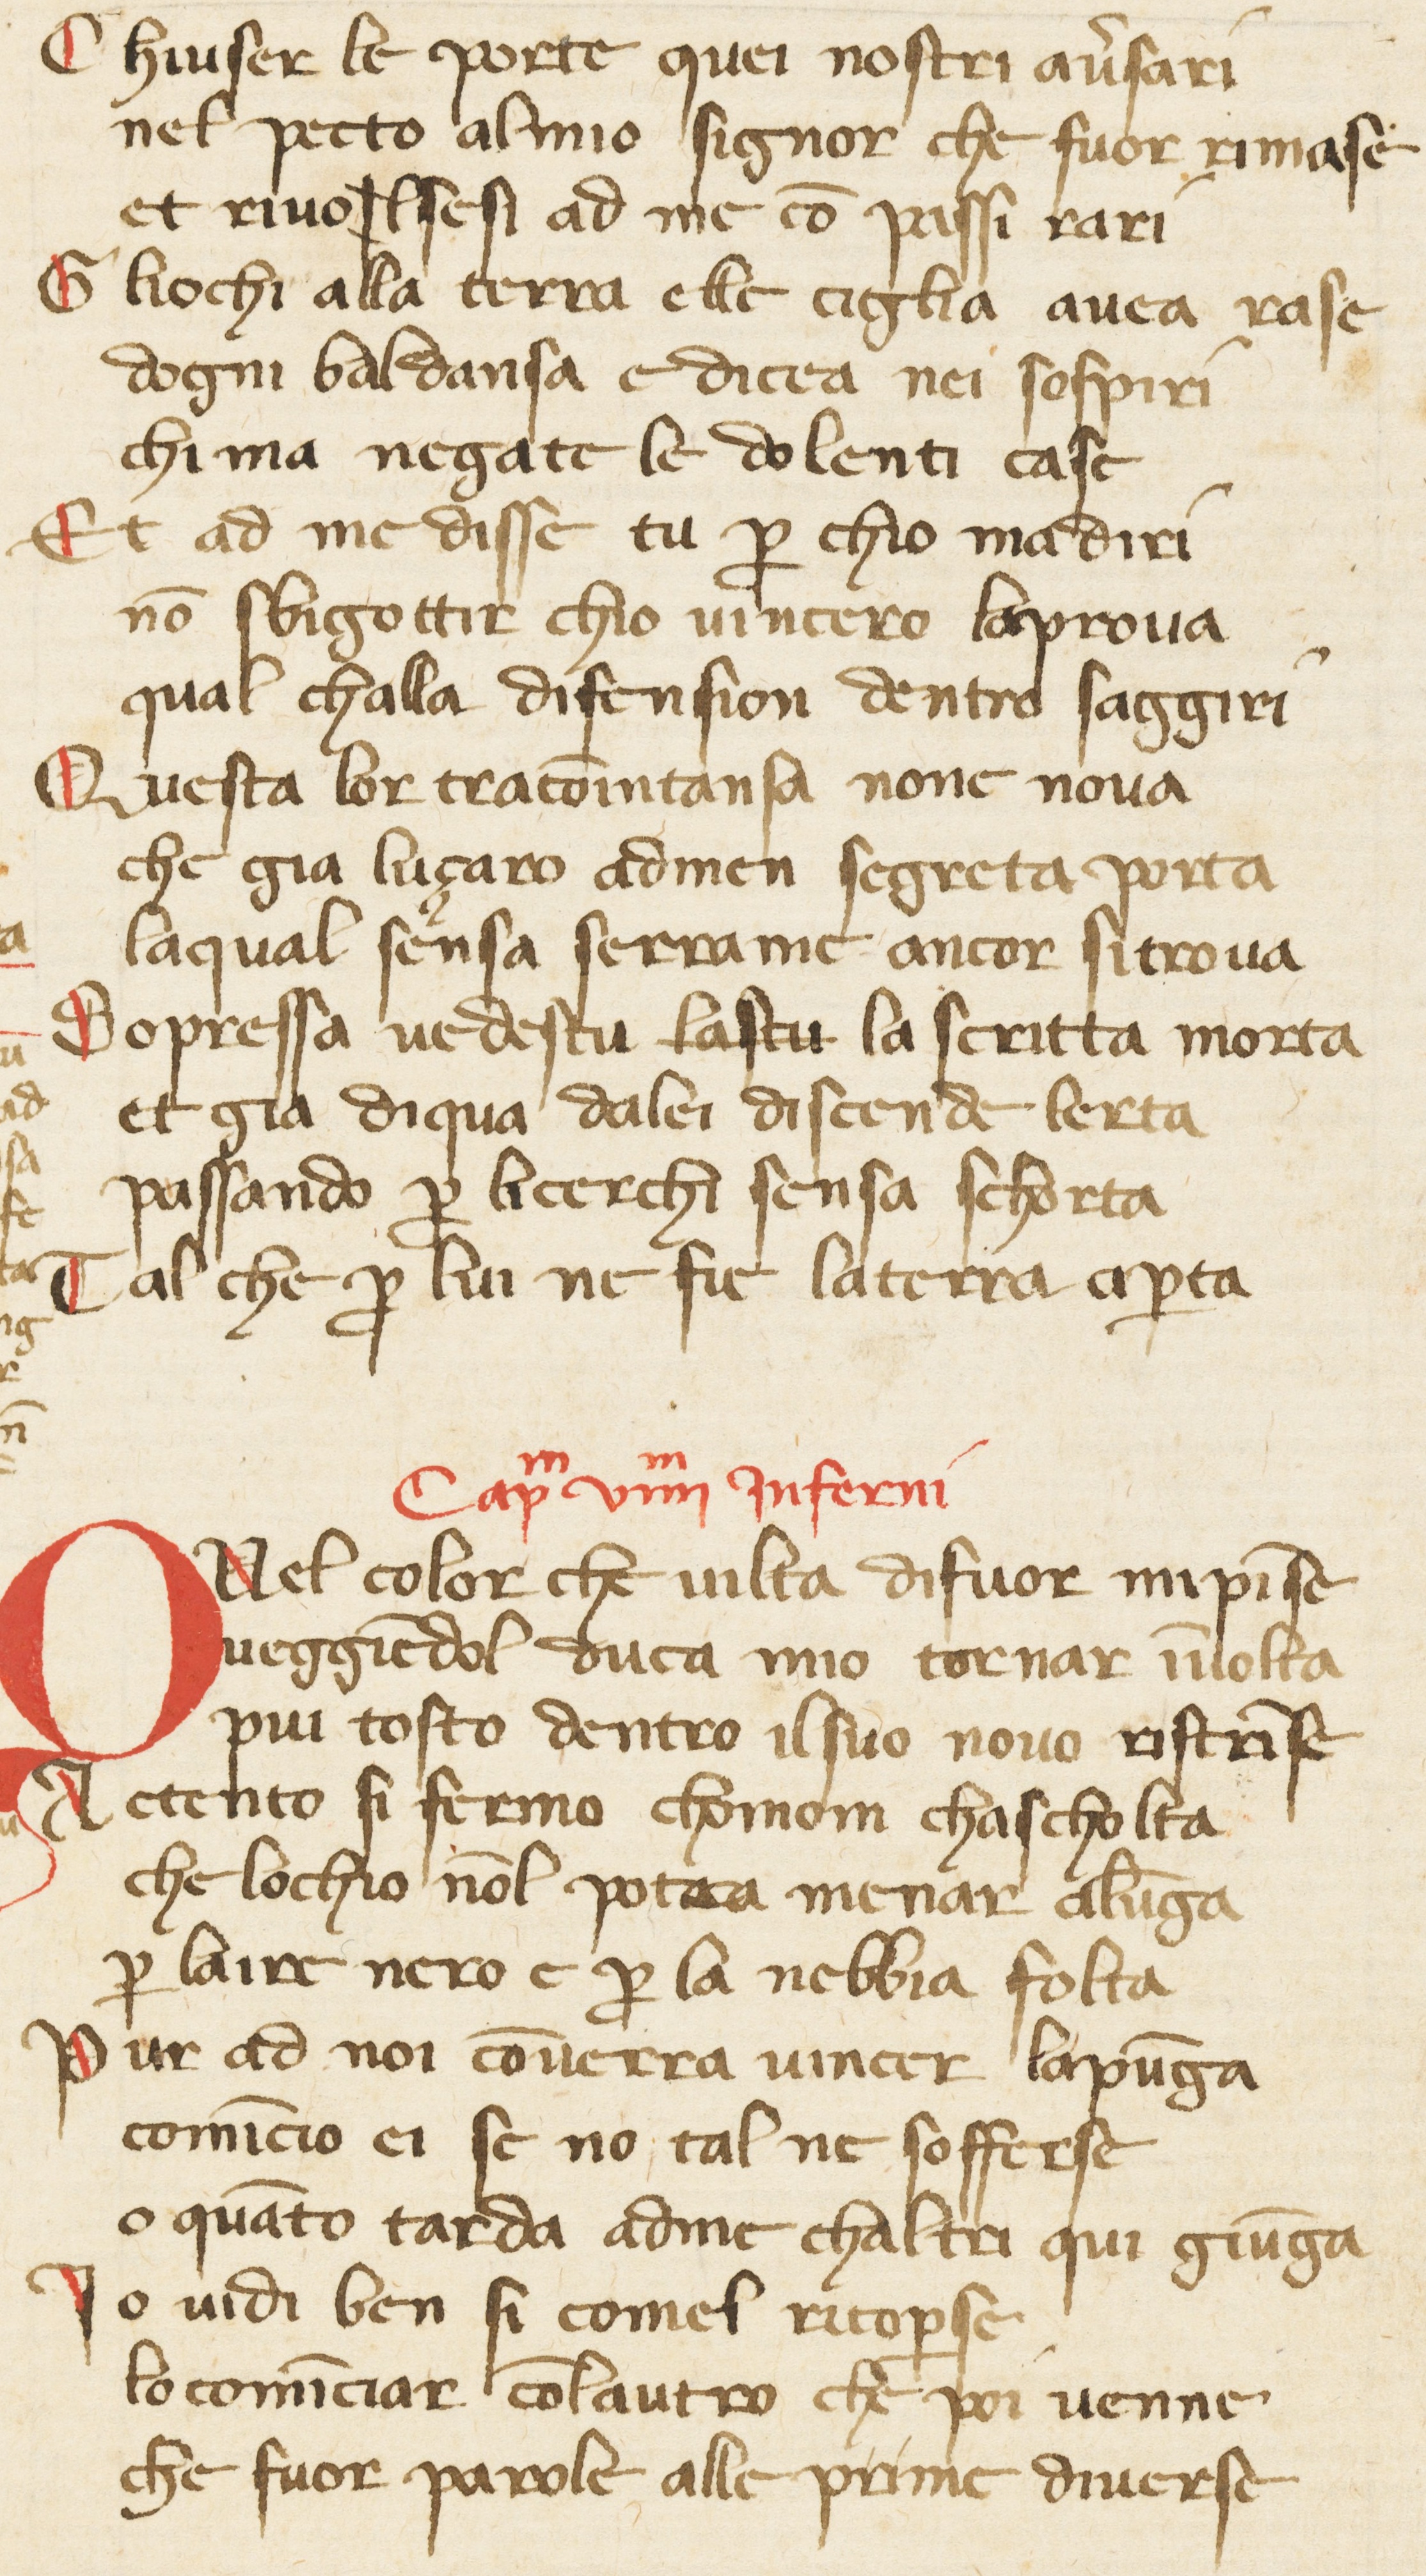 Chiuser le porte quei nostri au̓sari
nel pecto al mio signor che fuor rimase
et riuolsesi ad me cō passi rari
Gliochi alla terra elle ciglia auea rase
dogni baldansa e dicea nei sospiri
chi ma negate le dolenti case
Et ad me disse tu ꝑ chio madiri
nō sbigottir chio uincero laproua
qual challa difension dentro saggiri
Questa lor tracōintansa none noua
che gia luçaro admen segreta porta
laqual sensa serrame ancor sitroua
Sopressa uedestu lastu la scritta morta
et gia diqua dalei discende lerta
passando ꝑ licerchi sensa schorta
Tal che ꝑ lui ne fie laterra aꝑta
Capm viiiim Inferni
QNel color che uilta difuor mipīse
ueggiēdol duca mio tornar īuolta
piu tosto dentro ilsuo nouo ristrīse
Actento si fermo chomom chascholta
che lochio nōl potea menar alūga
ꝑ laire nero e ꝑ la nebbia folta
Pur ad noi cōuerra uincer lapūga
comīcio ei se no tal ne sofferse
o quāto tarda adme chaltri qui giūga
Io uidi ben si comel ricoꝑse
locomīciar cōlautro che poi uenne
che fuor parole alle prime diuerse